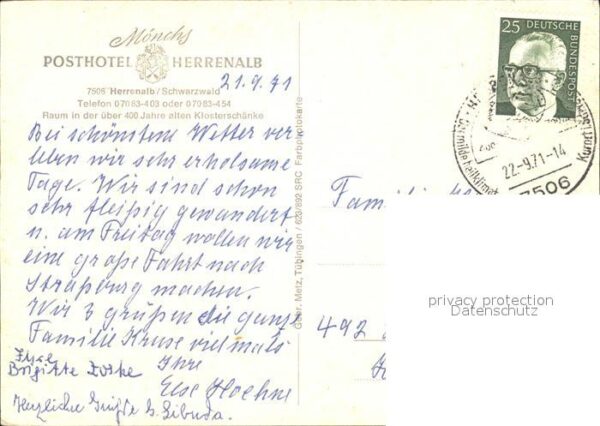 Mönchs
POSTHOTEL HERRENALB
7506 Herrenalb/Schwarzwald
Telefon 07083-403 oder 07083-454
Raum in der über 400 Jahre alten Klosterschänke
21.9.71
Bei schönstem Wetter ver
leben wir sehr erholsame
Tage. Wir sind schon
sehr fleißig gewandert
u. am Freitag wollen wir
eine große Fahrt nach
Straßburg machen.
Wir 3 grüßen die ganze
Familie Kruse vielmals
Ihre
Brigitte
Else Hoehne
Herzliche Grüße
Gebr. Metz, Tübingen / 623/892 SRC Farbphotokarte
25 DEUTSCHE
BUNDESPOST
22.-9.71-14
7506
Familie
492
privacy protection
Datenschutz